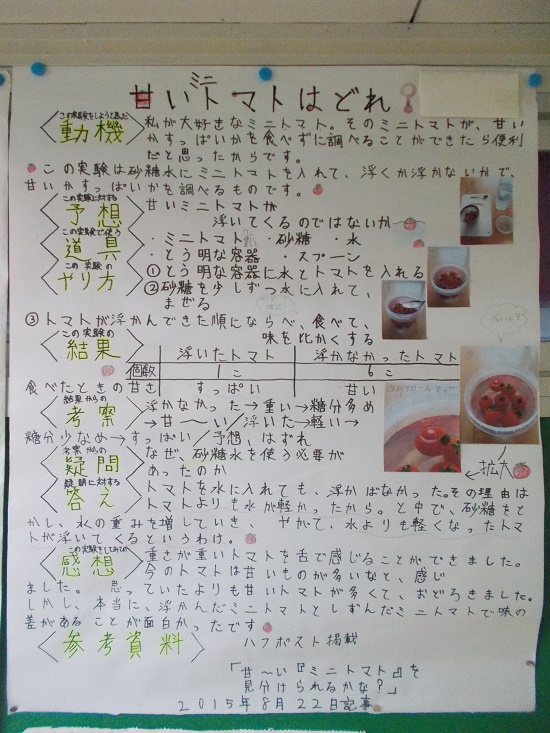 甘いミニトマトはどれ?
この実験をしようと思った
動機
私が大好きなミニトマト。そのミニトマトが、甘い
かすっぱいかを食べずに調べることができたら便利
だと思ったからです。
この実験は砂糖水にミニトマトを入れて、浮くか浮かないかで、
甘いかすっぱいかを調べるものです。
この実験に対する
予想
甘いミニトマトが
浮いてくるのではないか
この実験で使う
道具
・ミニトマト ・砂糖 ・水
・とう明な容器 ・スプーン
この実験の
やり方
①とう明な容器に水とトマトを入れる
②砂糖を少しずつ水に入れて、
まぜる
③トマトが浮かんできた順にならべ、食べて、
味を比かくする
この実験の
結果
浮いたトマト 浮かなかったトマト
個数 1こ 6こ
食べたときの甘さ すっぱい 甘い
結果からの
考察
浮かなかった→重い→糖分多め
→甘〜い/浮いた→軽い→
糖分少なめ→すっぱい/予想、はずれ
考察からの
疑問
なぜ、砂糖水を使う必要が
あったのか
疑問に対する
答え
トマトを水に入れても、浮かばなかった。その理由は
トマトよりも水が軽かったから。と中で、砂糖をと
かし、水の重みを増していき、やがて、水よりも軽くなったトマ
トが浮いてくるというわけ。
この実験をしてみての
感想
重さが重いトマトを舌で感じることができました。
今のトマトは甘いものが多いなと、感じ
ました。 思っていたよりも甘いトマトが多くて、おどろきました。
しかし、本当に、浮かんだミニトマトとしずんだミニトマトで味の
差があることが面白かったです
参考資料
ハフポスト掲載
「甘〜い『ミニトマト』を
見分けられるかな?」
2015年8月22日記事
拡大